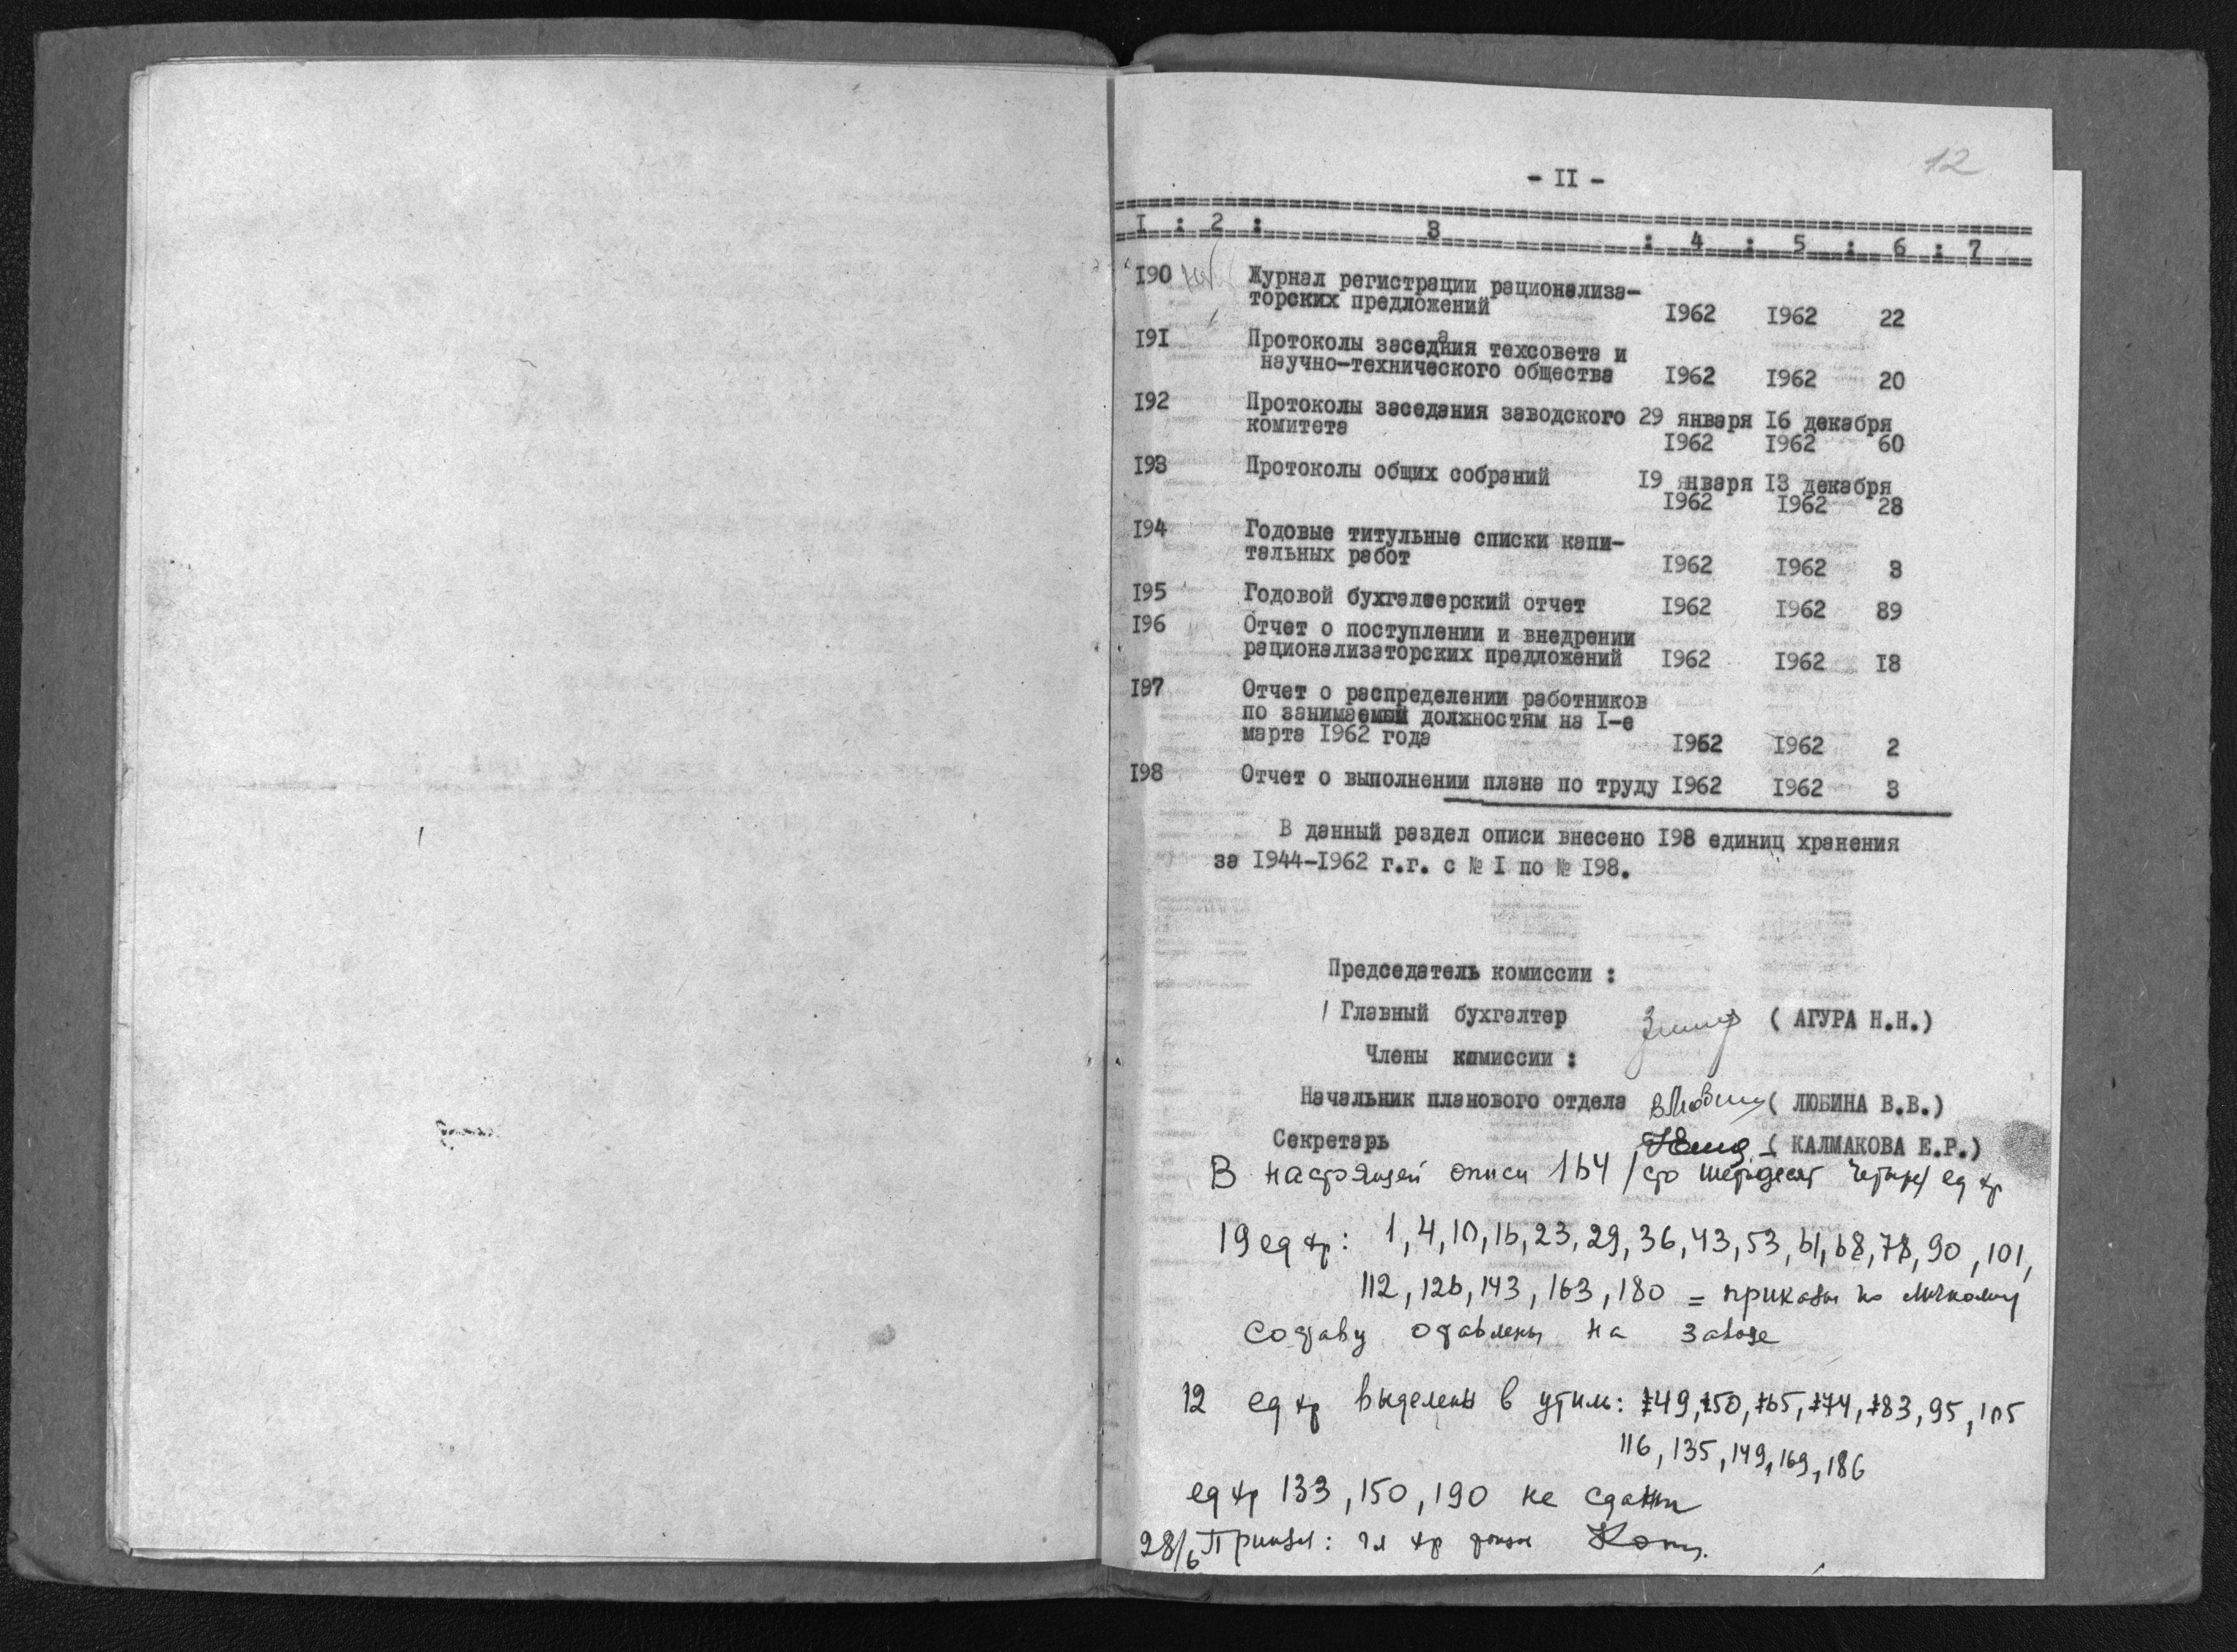 12
- II -
I : 2 : 3 : 4 : 5 : 6 : 7
I90 Журнал регистрации рационализа-
торских предложений I962 I962 22
I9I Протоколы заседния техсовета и
научно-технического общества I962 I962 20
I92 Протоколы заседания заводского 29 января I6 декабря
комитета I962 I962 60
I93 Протоколы общих собраний I9 января I3 декабря
I962 I962 28
I94 Годовые титульные списки капи-
тальных работ I962 I962 3
I95 Годовой бухгалтерский отчет I962 I962 89
I96 Отчет о поступлении и внедрении
рационализаторских предложений I962 I962 I8
I97 Отчет о распределении работников
по занимаемый должностям на I-е
марта I962 года I962 I962 2
I98 Отчет о выполнении плана по труду I962 I962 3
В данный раздел описи внесено I98 единиц хранения
за I944-I962 г.г. с № I по № I98.
Председатель комиссии :
Главный бухгалтер ( АГУРА Н.Н.)
Члены комиссии :
Начальник планового отдела ( ЛЮБИНА В.В.)
Секретарь ( КАЛМАКОВА Е.Р.)
В настоящей описи 164 /сто шестьдесят четыре/ ед хр
19 ед хр: 1, 4, 10, 16, 23, 29, 36, 43, 53, 61, 68, 78, 90, 101,
112, 126, 143, 163, 180 = приказы по личному
составу оставлены на заводе
12 ед хр выделены в утиль: 49, 50, 65, 74, 83, 95, 105
116, 135, 149, 169, 186
ед хр 133, 150, 190 не сданы
28/6 Принял: гл хр